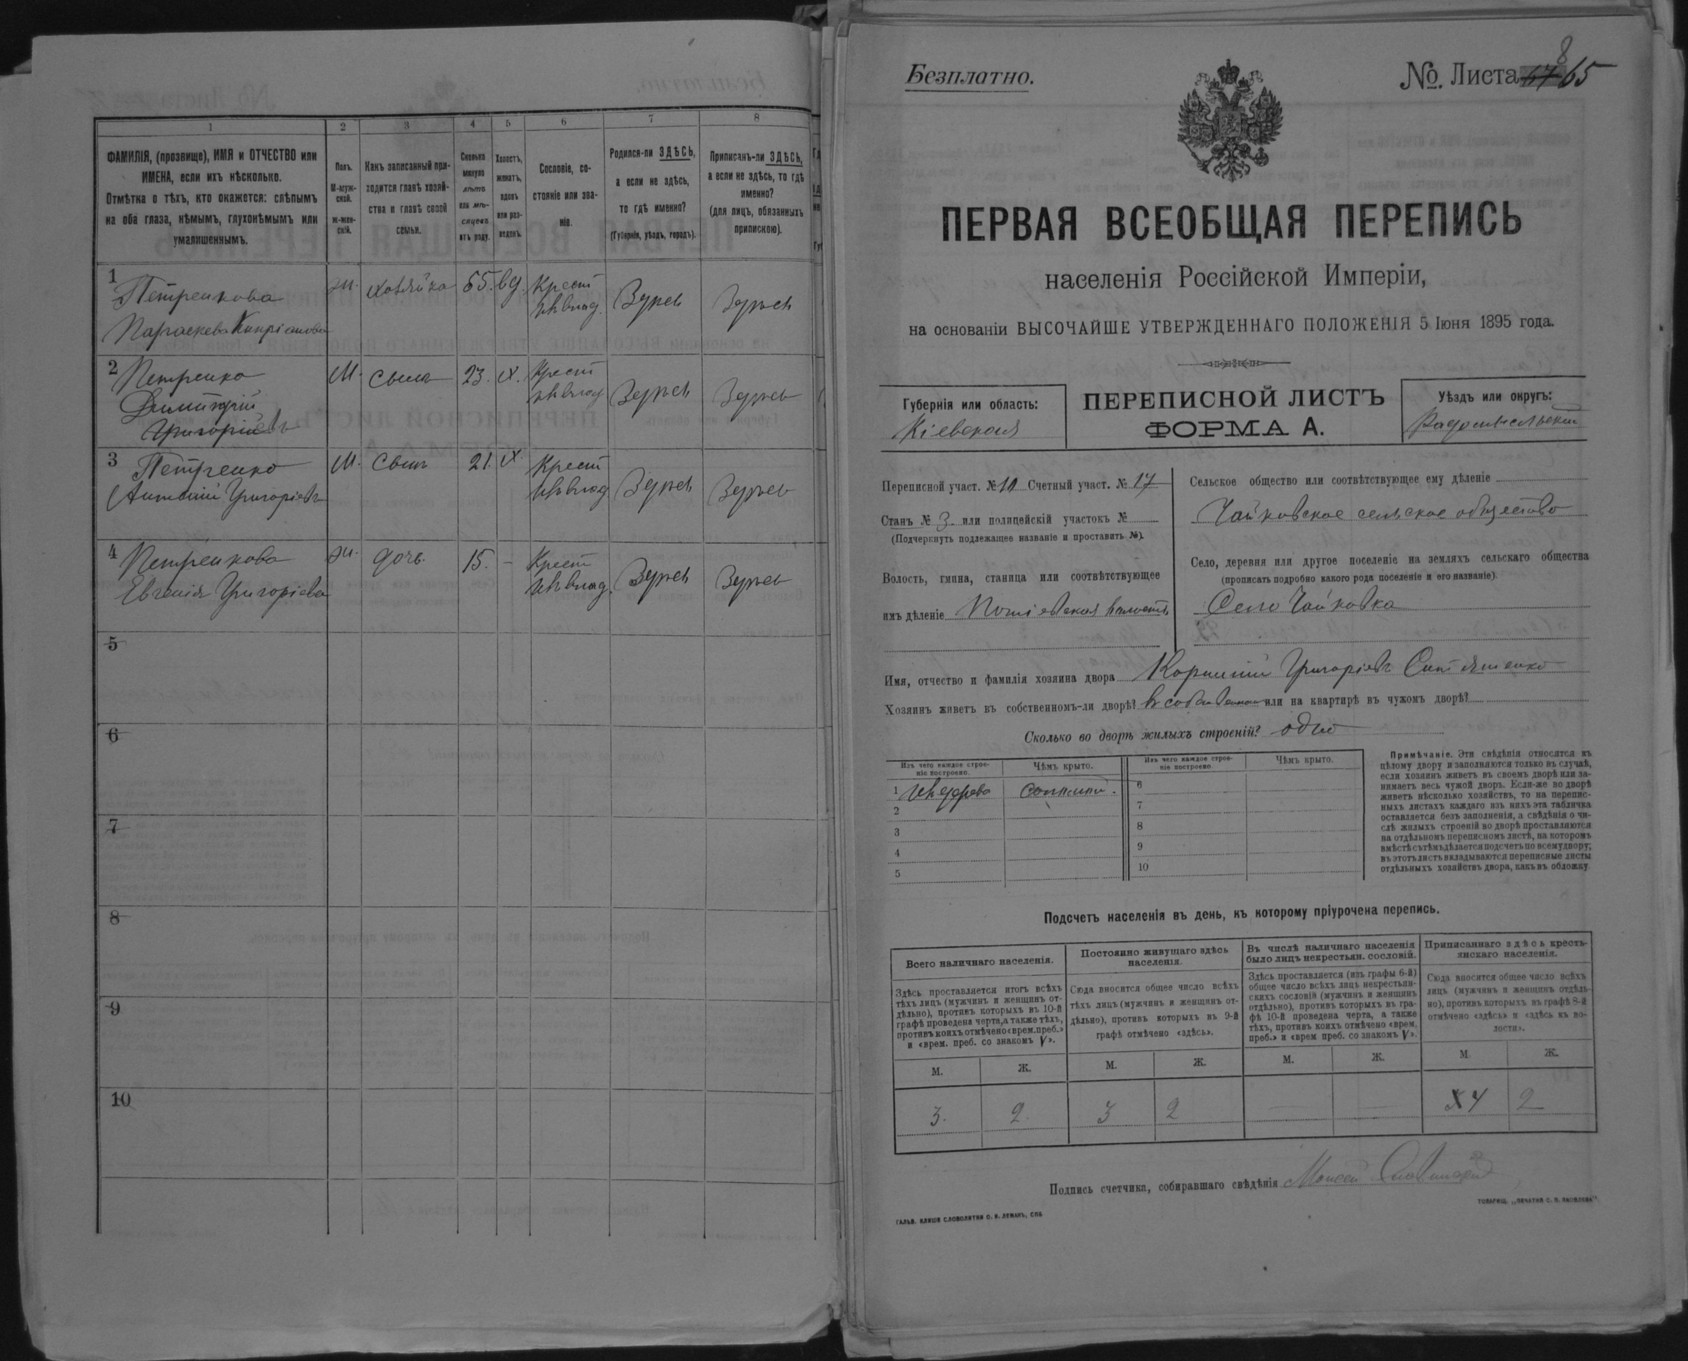 1
2
3
4
5
6
7
8
ФАМИЛІЯ, (прозвище), ИМЯ и ОТЧЕСТВО или
ИМЕНА, если ихъ нѣсколько.
Отмѣтка о тѣхъ, кто окажется: слѣпымъ
на оба глаза, нѣмымъ, глухонѣмымъ или
умалишеннымъ.
Полъ.
М-муж-
ской.
ж-жен-
скій.
Какъ записанный при-
ходится главѣ хозяй-
ства и главѣ своей
семьи.
Сколько
минуло
лѣтъ
или мѣ-
сяцевъ
отъ роду.
Холостъ,
женатъ,
вдовъ
или раз-
веденъ.
Сословіе, со-
стояніе или зва-
ніе.
Родился-ли ЗДѢСЬ,
а если не здѣсь,
то гдѣ именно?
(Губернія, уѣздъ, городъ).
Приписанъ-ли ЗДѢСЬ,
а если не здѣсь, то гдѣ
именно?
(для лицъ, обязанныхъ
припискою).
1
Петренкова
Параскева Кипріанова
ж. хозяйка 65. вд. Крест
Здѣсь Здѣсь
2 Петренко
Димитрій
Григоріевъ
М. сынъ 23. х. Крест
Здѣсь Здѣсь
3 Петренко
Антоній Григоріевъ
М. сынъ 21. х Крест
Здѣсь Здѣсь
4 Петренкова
Евгенія Григоріева
ж. дочь. 15. – Крест
Здѣсь Здѣсь
5
6
7
8
9
10
Безплатно.
№. Листа 65
8
ПЕРВАЯ ВСЕОБЩАЯ ПЕРЕПИСЬ
населенія Россійской Имперіи,
на основаніи ВЫСОЧАЙШЕ УТВЕРЖДЕННАГО ПОЛОЖЕНІЯ 5 Іюня 1895 года.
Губернія или область:
Кіевская
ПЕРЕПИСНОЙ ЛИСТЪ
ФОРМА А.
Уѣздъ или округъ:
Радомысльскій
Переписной участ. № 10 Счетный участ. № 17
Станъ № 3 или полицейскій участокъ №
(Подчеркнуть подлежащее названіе и проставить №).
Волость, гмина, станица или соотвѣтствующее
имъ дѣленіе Потіевская волость
Сельское общество или соотвѣтствующее ему дѣленіе
Чайковское сельское общество
Село, деревня или другое поселеніе на земляхъ сельскаго общества
(прописать подробно какого рода поселеніе и его названіе)
Село Чайковка
Имя, отчество и фамилія хозяина двора Корнилій Григоріевъ
Хозяинъ живетъ въ собственномъ-ли дворѣ? в собственном или на квартирѣ въ чужомъ дворѣ?
Сколько во дворѣ жилыхъ строеній? одно
Изъ чего каждое строе-
ніе построено.
Чѣмъ крыто.
Изъ чего каждое строе-
ніе построено.
Чѣмъ крыто.
1 изъ дерева
соломой.
2
3
4
5
6
7
8
9
10
Примѣчаніе. Эти свѣдѣнія относятся къ
цѣлому двору и заполняются только въ случаѣ,
если хозяинъ живетъ въ своемъ дворѣ или за-
нимаетъ весь чужой дворъ. Если-же во дворѣ
живетъ нѣсколько хозяйствъ, то на перепис-
ныхъ листахъ каждаго изъ нихъ эта табличка
оставляется безъ заполненія, а свѣдѣнія о чи-
слѣ жилыхъ строеній во дворѣ проставляются
на отдѣльномъ переписномъ листѣ, на которомъ
вмѣстѣ съ тѣмъ дѣлается подсчетъ по всему двору;
въ этотъ листъ вкладываются переписные листы
отдѣльныхъ хозяйствъ двора, какъ въ обложку.
Подсчетъ населенія въ день, къ которому пріурочена перепись.
Всего наличнаго населенія.
Здѣсь проставляется итогъ всѣхъ
тѣхъ лицъ (мужчинъ и женщинъ от-
дѣльно), противъ которыхъ въ 10-й
графѣ проведена черта, а также тѣхъ,
противъ коихъ отмѣчено «врем. преб.»
и «врем. преб. со знакомъ V».
Постоянно живущаго здѣсь
населенія.
Сюда вносится общее число всѣхъ
тѣхъ лицъ (мужчинъ и женщинъ от-
дѣльно), противъ которыхъ въ 9-й
графѣ отмѣчено «здѣсь».
Въ числѣ наличнаго населенія
было лицъ некрестьян. сословій.
Здѣсь проставляется (изъ графы 6-й)
общее число всѣхъ лицъ некрестьян-
скихъ сословій (мужчинъ и женщинъ
отдѣльно), противъ которыхъ въ гра-
фѣ 10-й проведена черта, а также
тѣхъ, противъ коихъ отмѣчено «врем.
преб.» и «врем преб. со знакомъ V».
Приписаннаго здѣсь кресть-
янскаго населенія.
Сюда вносится общее число всѣхъ
лицъ (мужчинъ и женщинъ отдѣль-
но), противъ которыхъ въ графѣ 8-й
отмѣчено «здѣсь» и «здѣсь въ во-
лости».
М. Ж. М. Ж. М. Ж. М. Ж.
3. 2. 3 2 — — 4 2
Подпись счетчика, собиравшаго свѣдѣнія Моисей
ГАЛЬВ. КЛИШЕ СЛОВОЛИТНИ О. И. ЛЕМАНЪ, СПБ.
ТОВАРИЩ. „ПЕЧАТНЯ С. П. ЯКОВЛЕВА“.